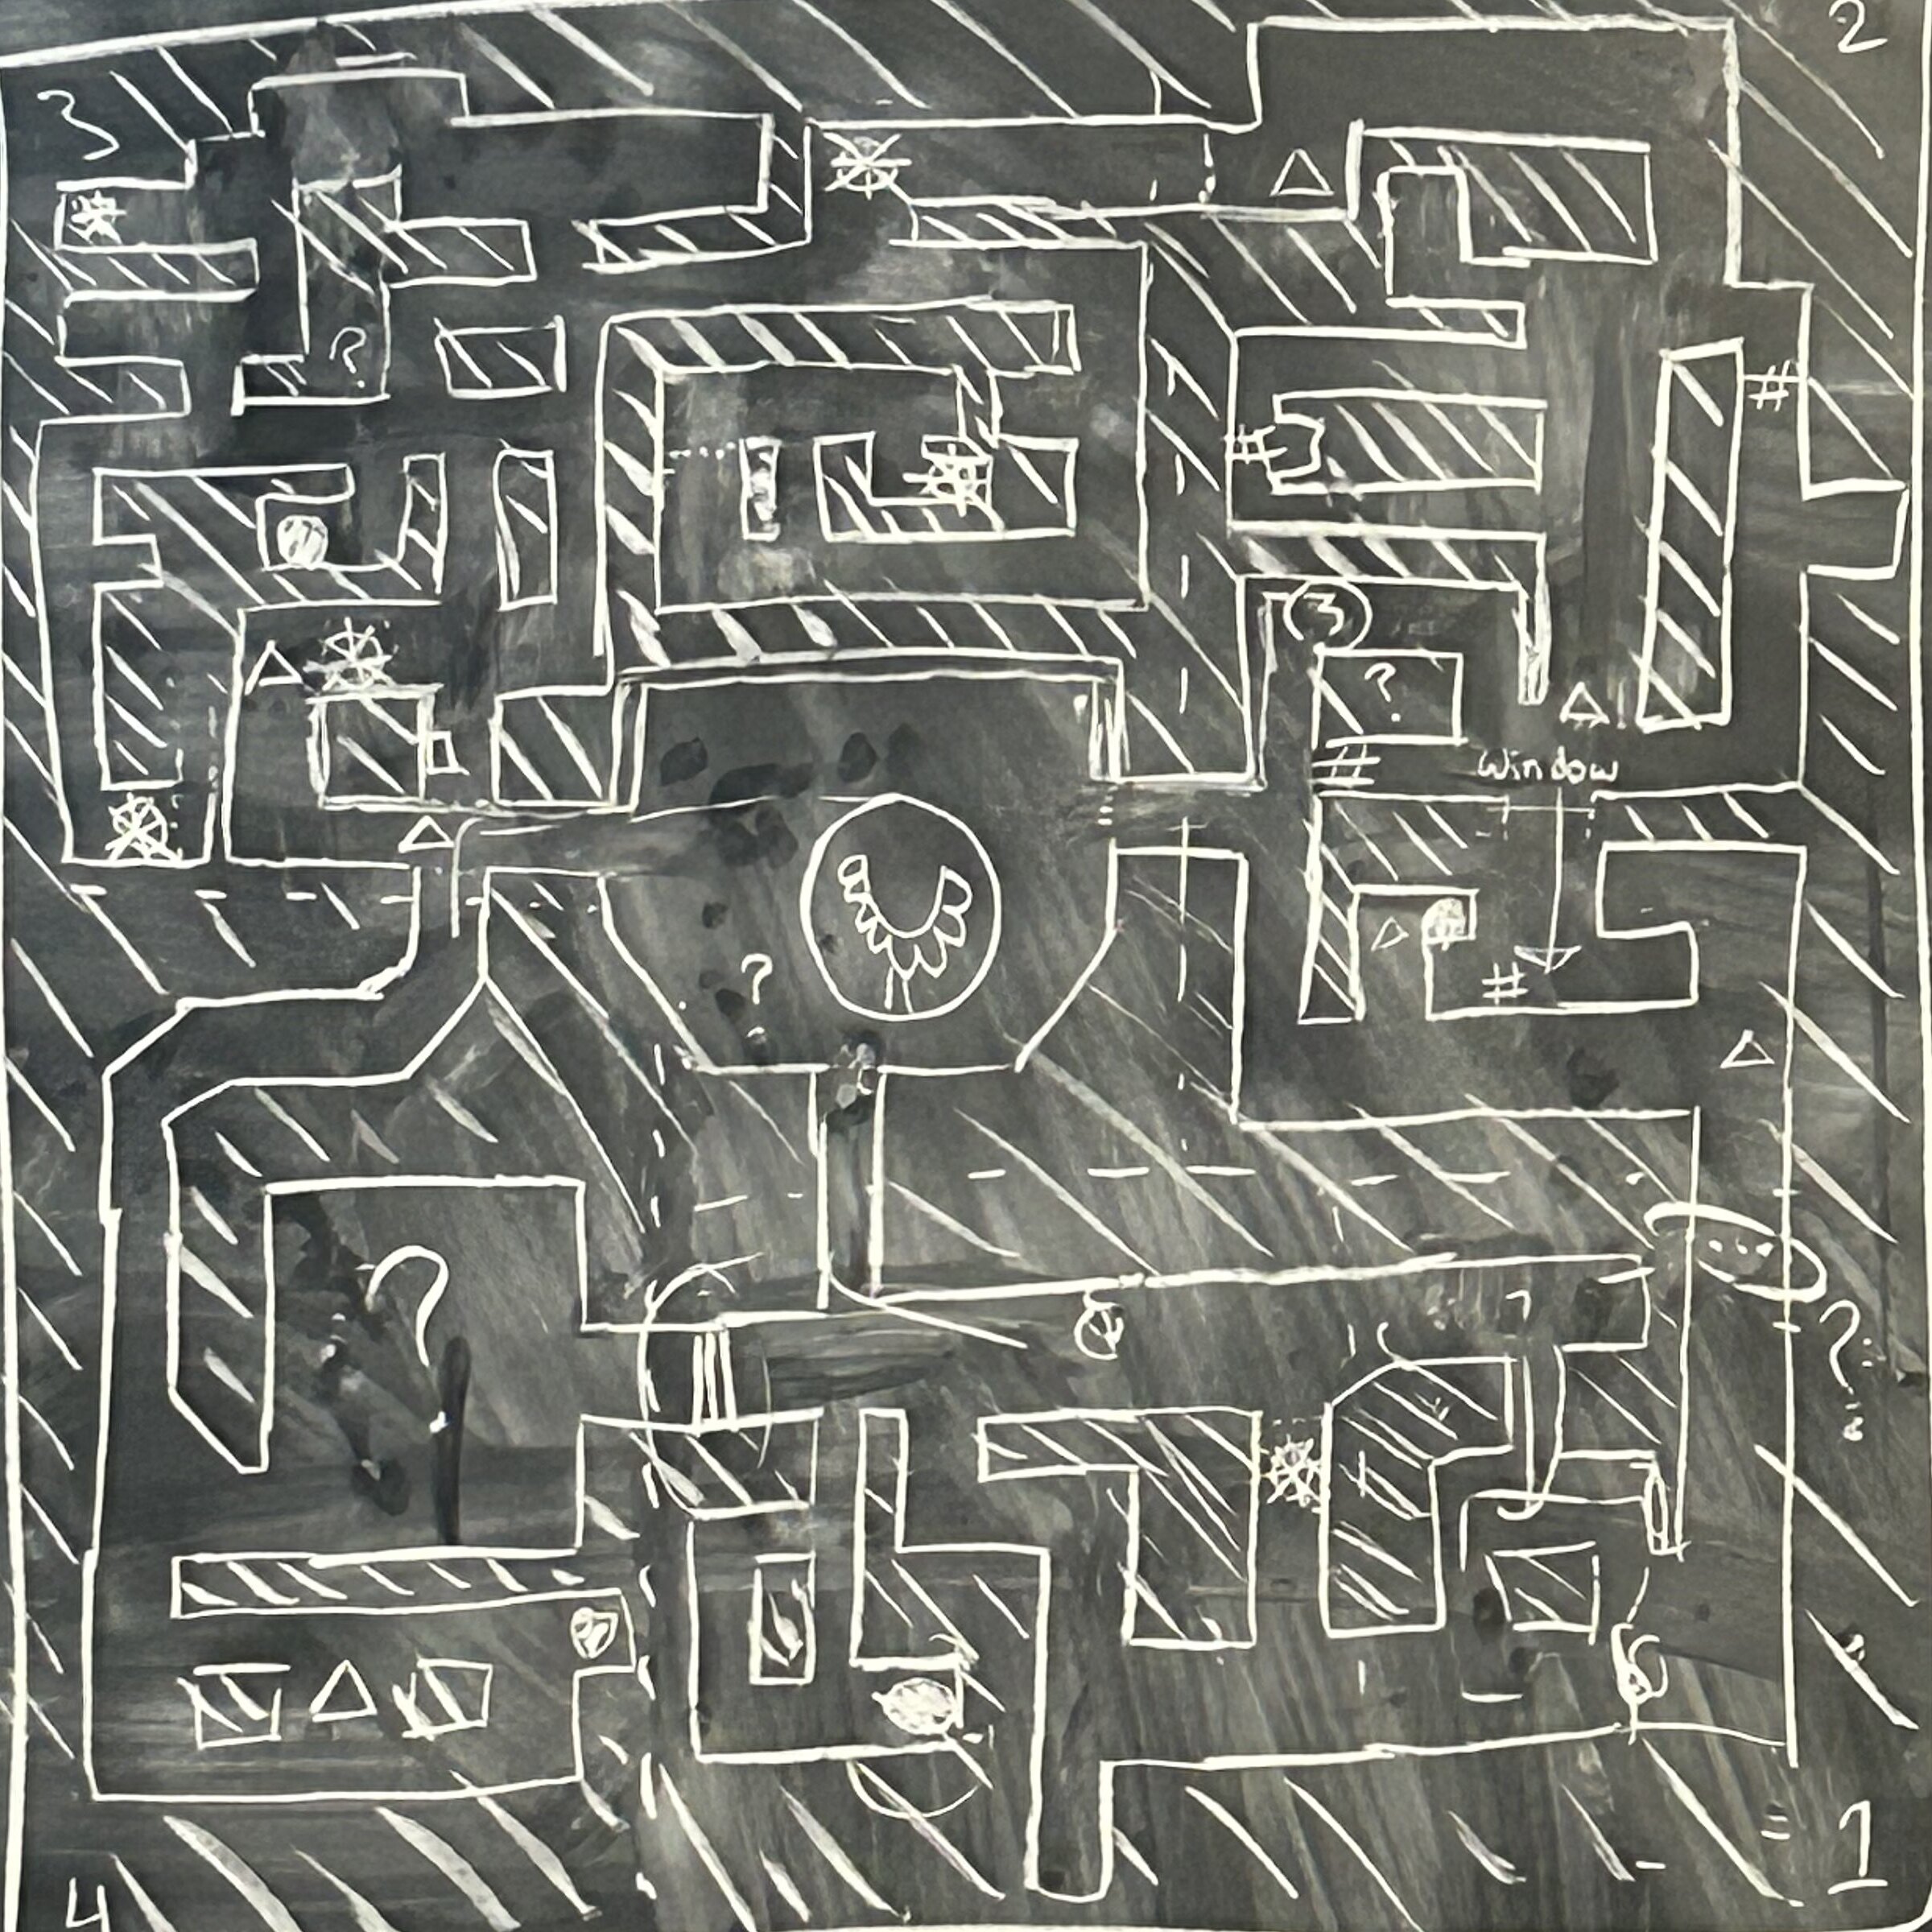 2
3
?
#
#
3
?
#
window
#
?
?
?
1
4